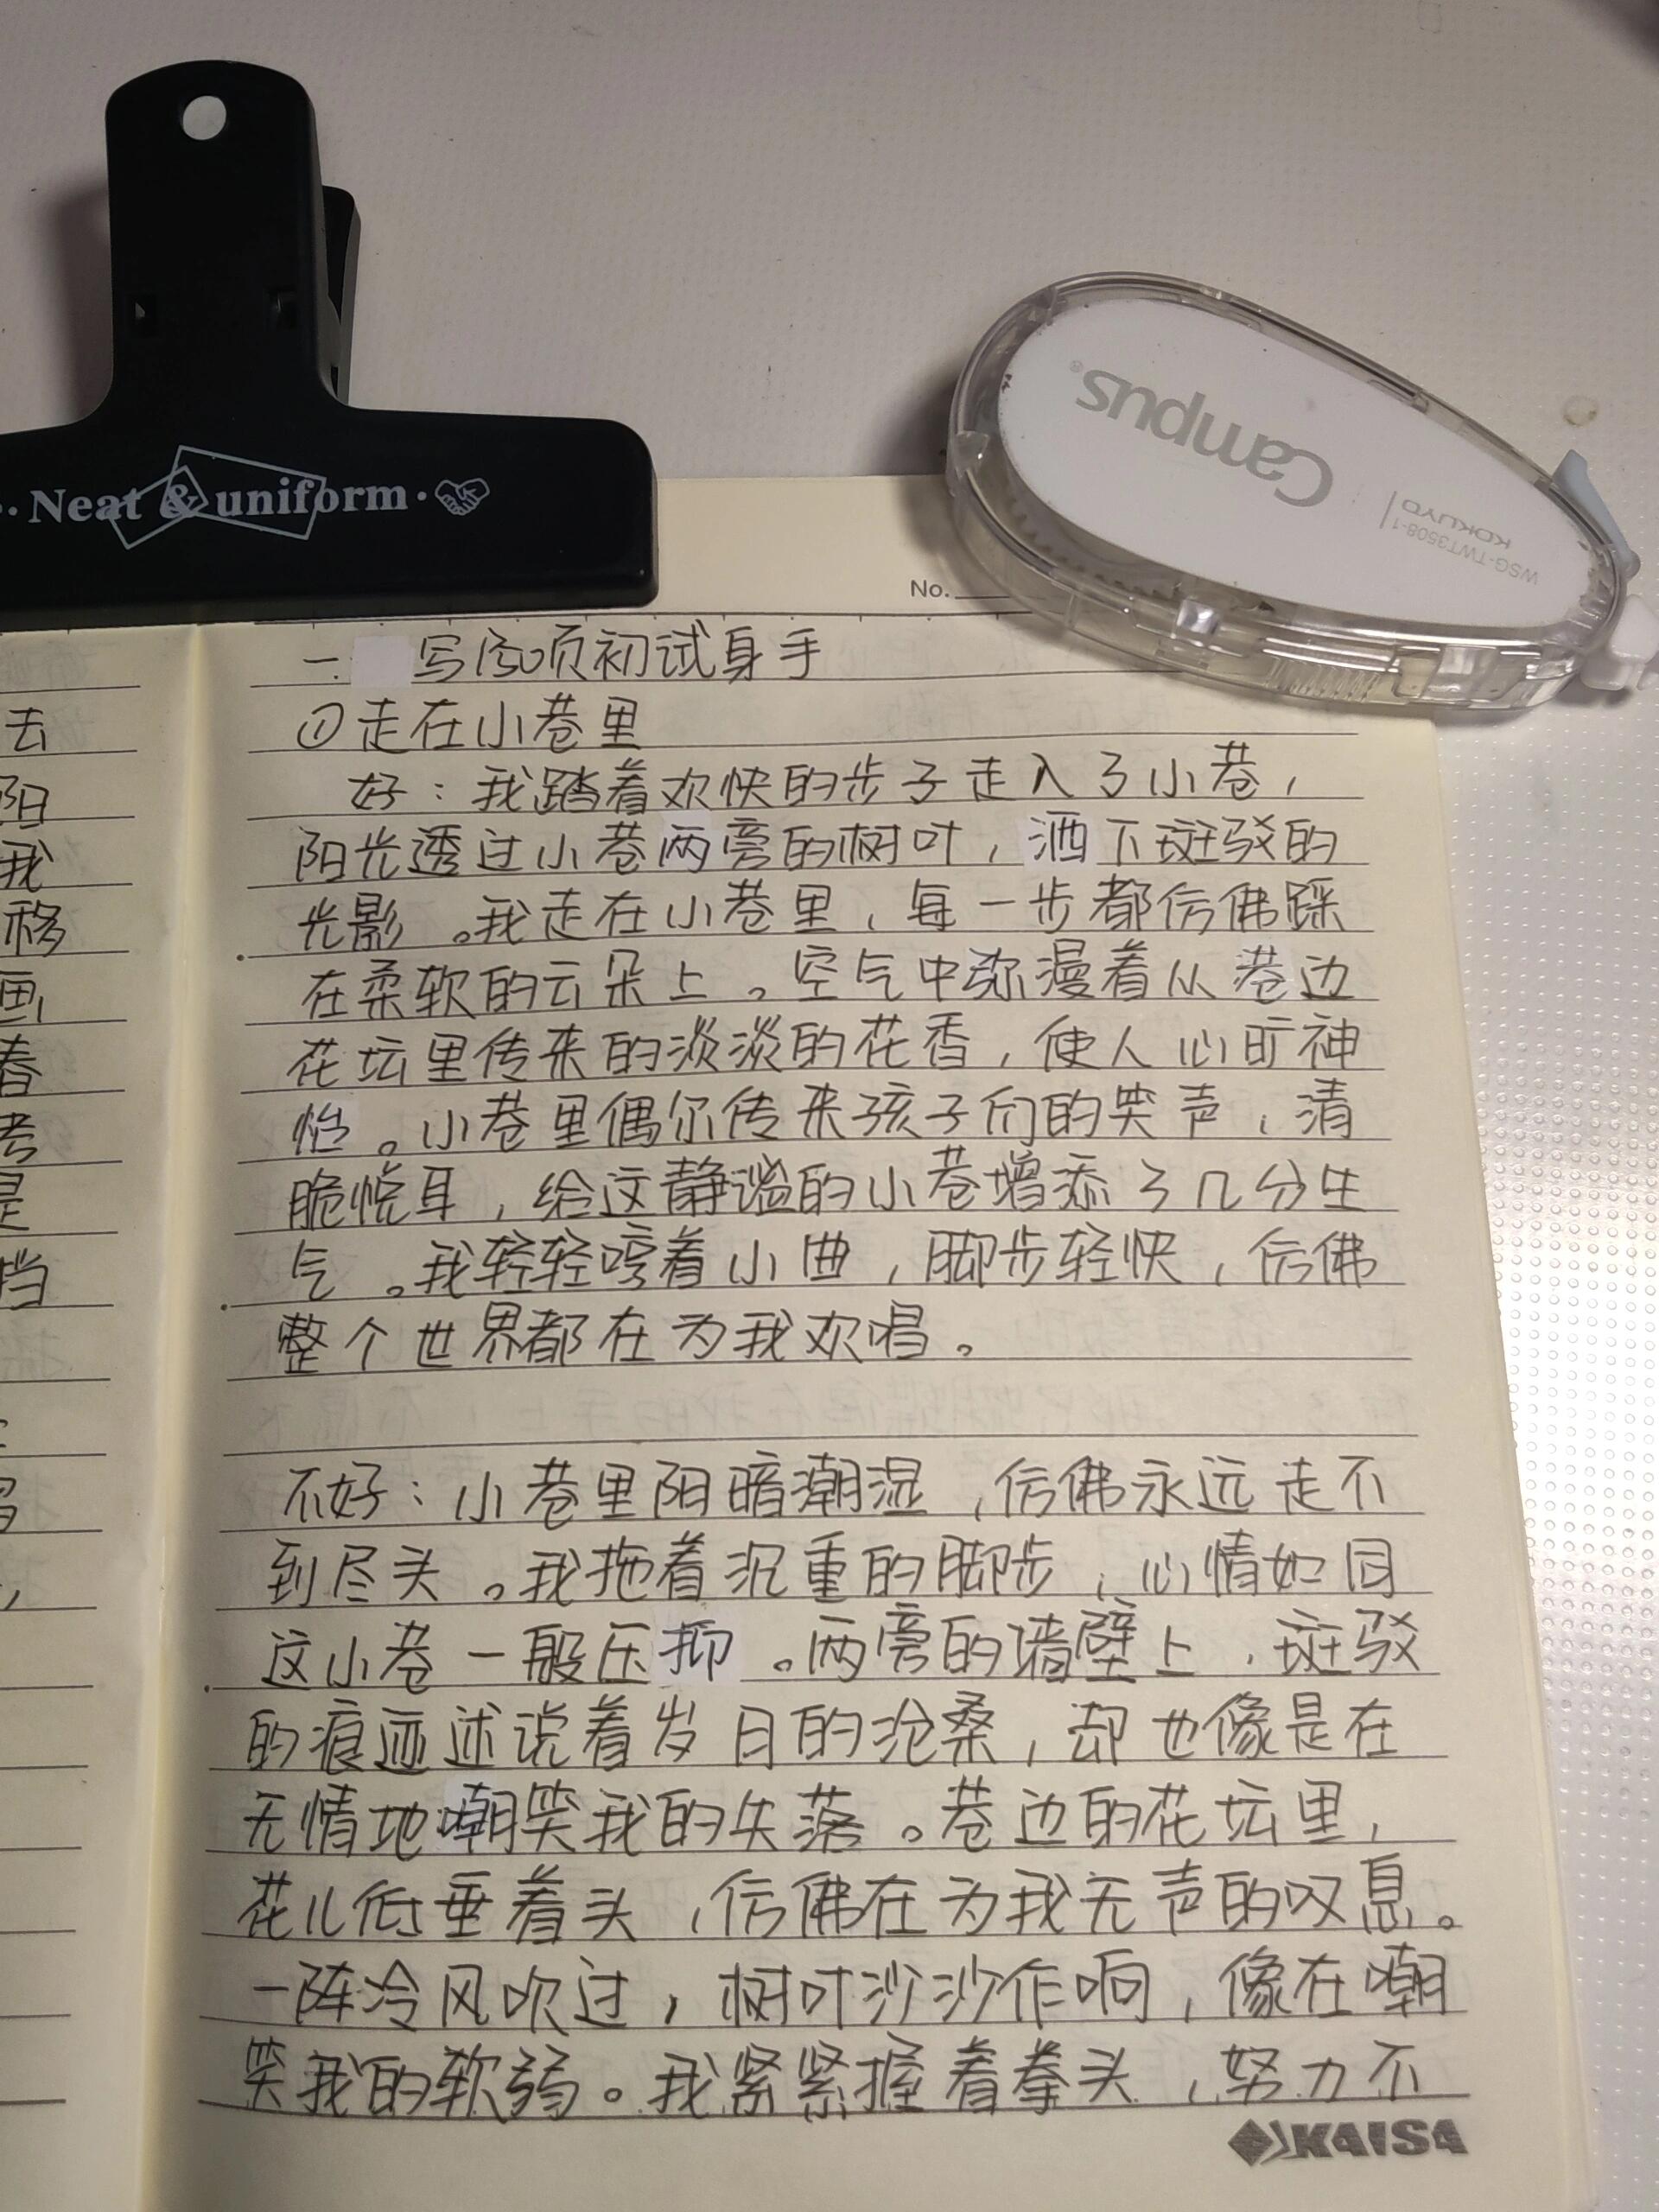 ·Neat & uniform·
Campus®
KOKUYO
WSG-TWT3508-1
No.
一. 写段初试身手
①走在小巷里
好：我踏着欢快的步子走入了小巷，
阳光透过小巷两旁的树叶，洒下斑驳的
光影。我走在小巷里，每一步都仿佛踩
在柔软的云朵上。空气中弥漫着从巷边
花坛里传来的淡淡的花香，使人心旷神
怡。小巷里偶尔传来孩子们的笑声，清
脆悦耳，给这静谧的小巷增添了几分生
气。我轻轻哼着小曲，脚步轻快，仿佛
整个世界都在为我欢唱。
不好：小巷里阴暗潮湿，仿佛永远走不
到尽头。我拖着沉重的脚步，心情如同
这小巷一般压抑。两旁的墙壁上，斑驳
的痕迹述说着岁月的沧桑，却也像是在
无情地嘲笑我的失落。巷边的花坛里，
花儿低垂着头，仿佛在为我无声的叹息。
一阵冷风吹过，树叶沙沙作响，像在嘲
笑我的软弱。我紧紧握着拳头，努力不
KAISA
去
阳
我
移
画
春
考
是
挡